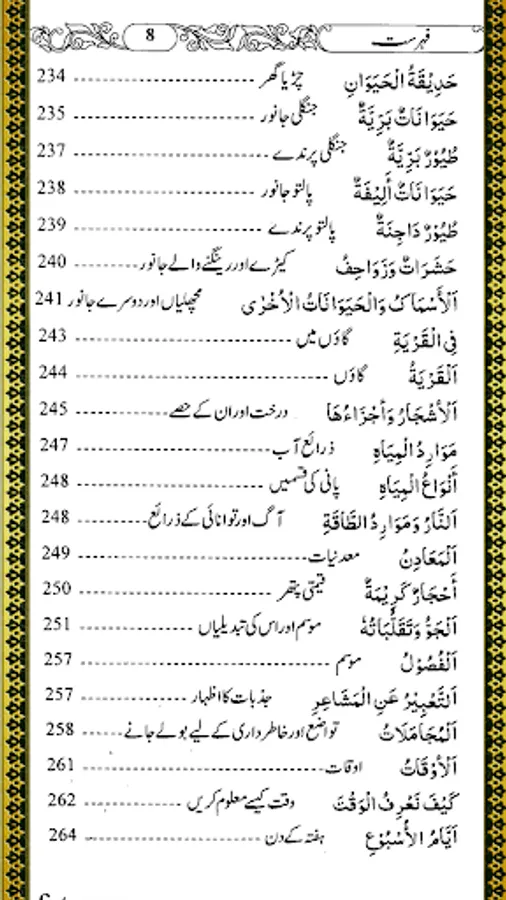 فہرست 8
حَدِيْقَةُ الْحَيَوَانِ چڑیا گھر ---------------------------- 234
حَيَوَانَاتٌ بَرِّيَّةٌ جنگلی جانور ---------------------------- 235
طُيُوْرٌ بَرِّيَّةٌ جنگلی پرندے ---------------------------- 237
حَيَوَانَاتٌ أَلِيْفَةٌ پالتو جانور ---------------------------- 238
طُيُوْرٌ دَاجِنَةٌ پالتو پرندے ---------------------------- 239
حَشَرَاتٌ وَزَوَاحِفُ کیڑے اور رینگنے والے جانور ------------- 240
اَلْأَسْمَاكُ وَالْحَيَوَانَاتُ الْأُخْرٰى مچھلیاں اور دوسرے جانور 241
فِي الْقَرْيَةِ گاؤں میں ---------------------------- 243
اَلْقَرْيَةُ گاؤں ---------------------------- 244
اَلْأَشْجَارُ وَأَجْزَاءُهَا درخت اور ان کے حصے ------------- 245
مَوَارِدُ الْمِيَاهِ ذرائع آب ---------------------------- 247
أَنْوَاعُ الْمِيَاهِ پانی کی قسمیں ---------------------------- 248
اَلنَّارُ وَمَوَارِدُ الطَّاقَةِ آگ اور توانائی کے ذرائع ---------- 248
اَلْمَعَادِنُ معدنیات ---------------------------- 249
أَحْجَارٌ كَرِيْمَةٌ قیمتی پتھر ---------------------------- 250
اَلْجَوُّ وَتَقَلُّبَاتُهُ موسم اور اس کی تبدیلیاں ---------------- 251
اَلْفُصُوْلُ موسم ---------------------------- 257
اَلتَّعْبِيْرُ عَنِ الْمَشَاعِرِ جذبات کا اظہار ---------------- 257
اَلْمُجَامَلَاتُ تواضع اور خاطر داری کے لیے بولے جانے ------ 258
اَلْأَوْقَاتُ اوقات ---------------------------- 261
كَيْفَ نَعْرِفُ الْوَقْتَ وقت کیسے معلوم کریں ---------------- 262
أَيَّامُ الْأُسْبُوْعِ ہفتہ کے دن ---------------------------- 264